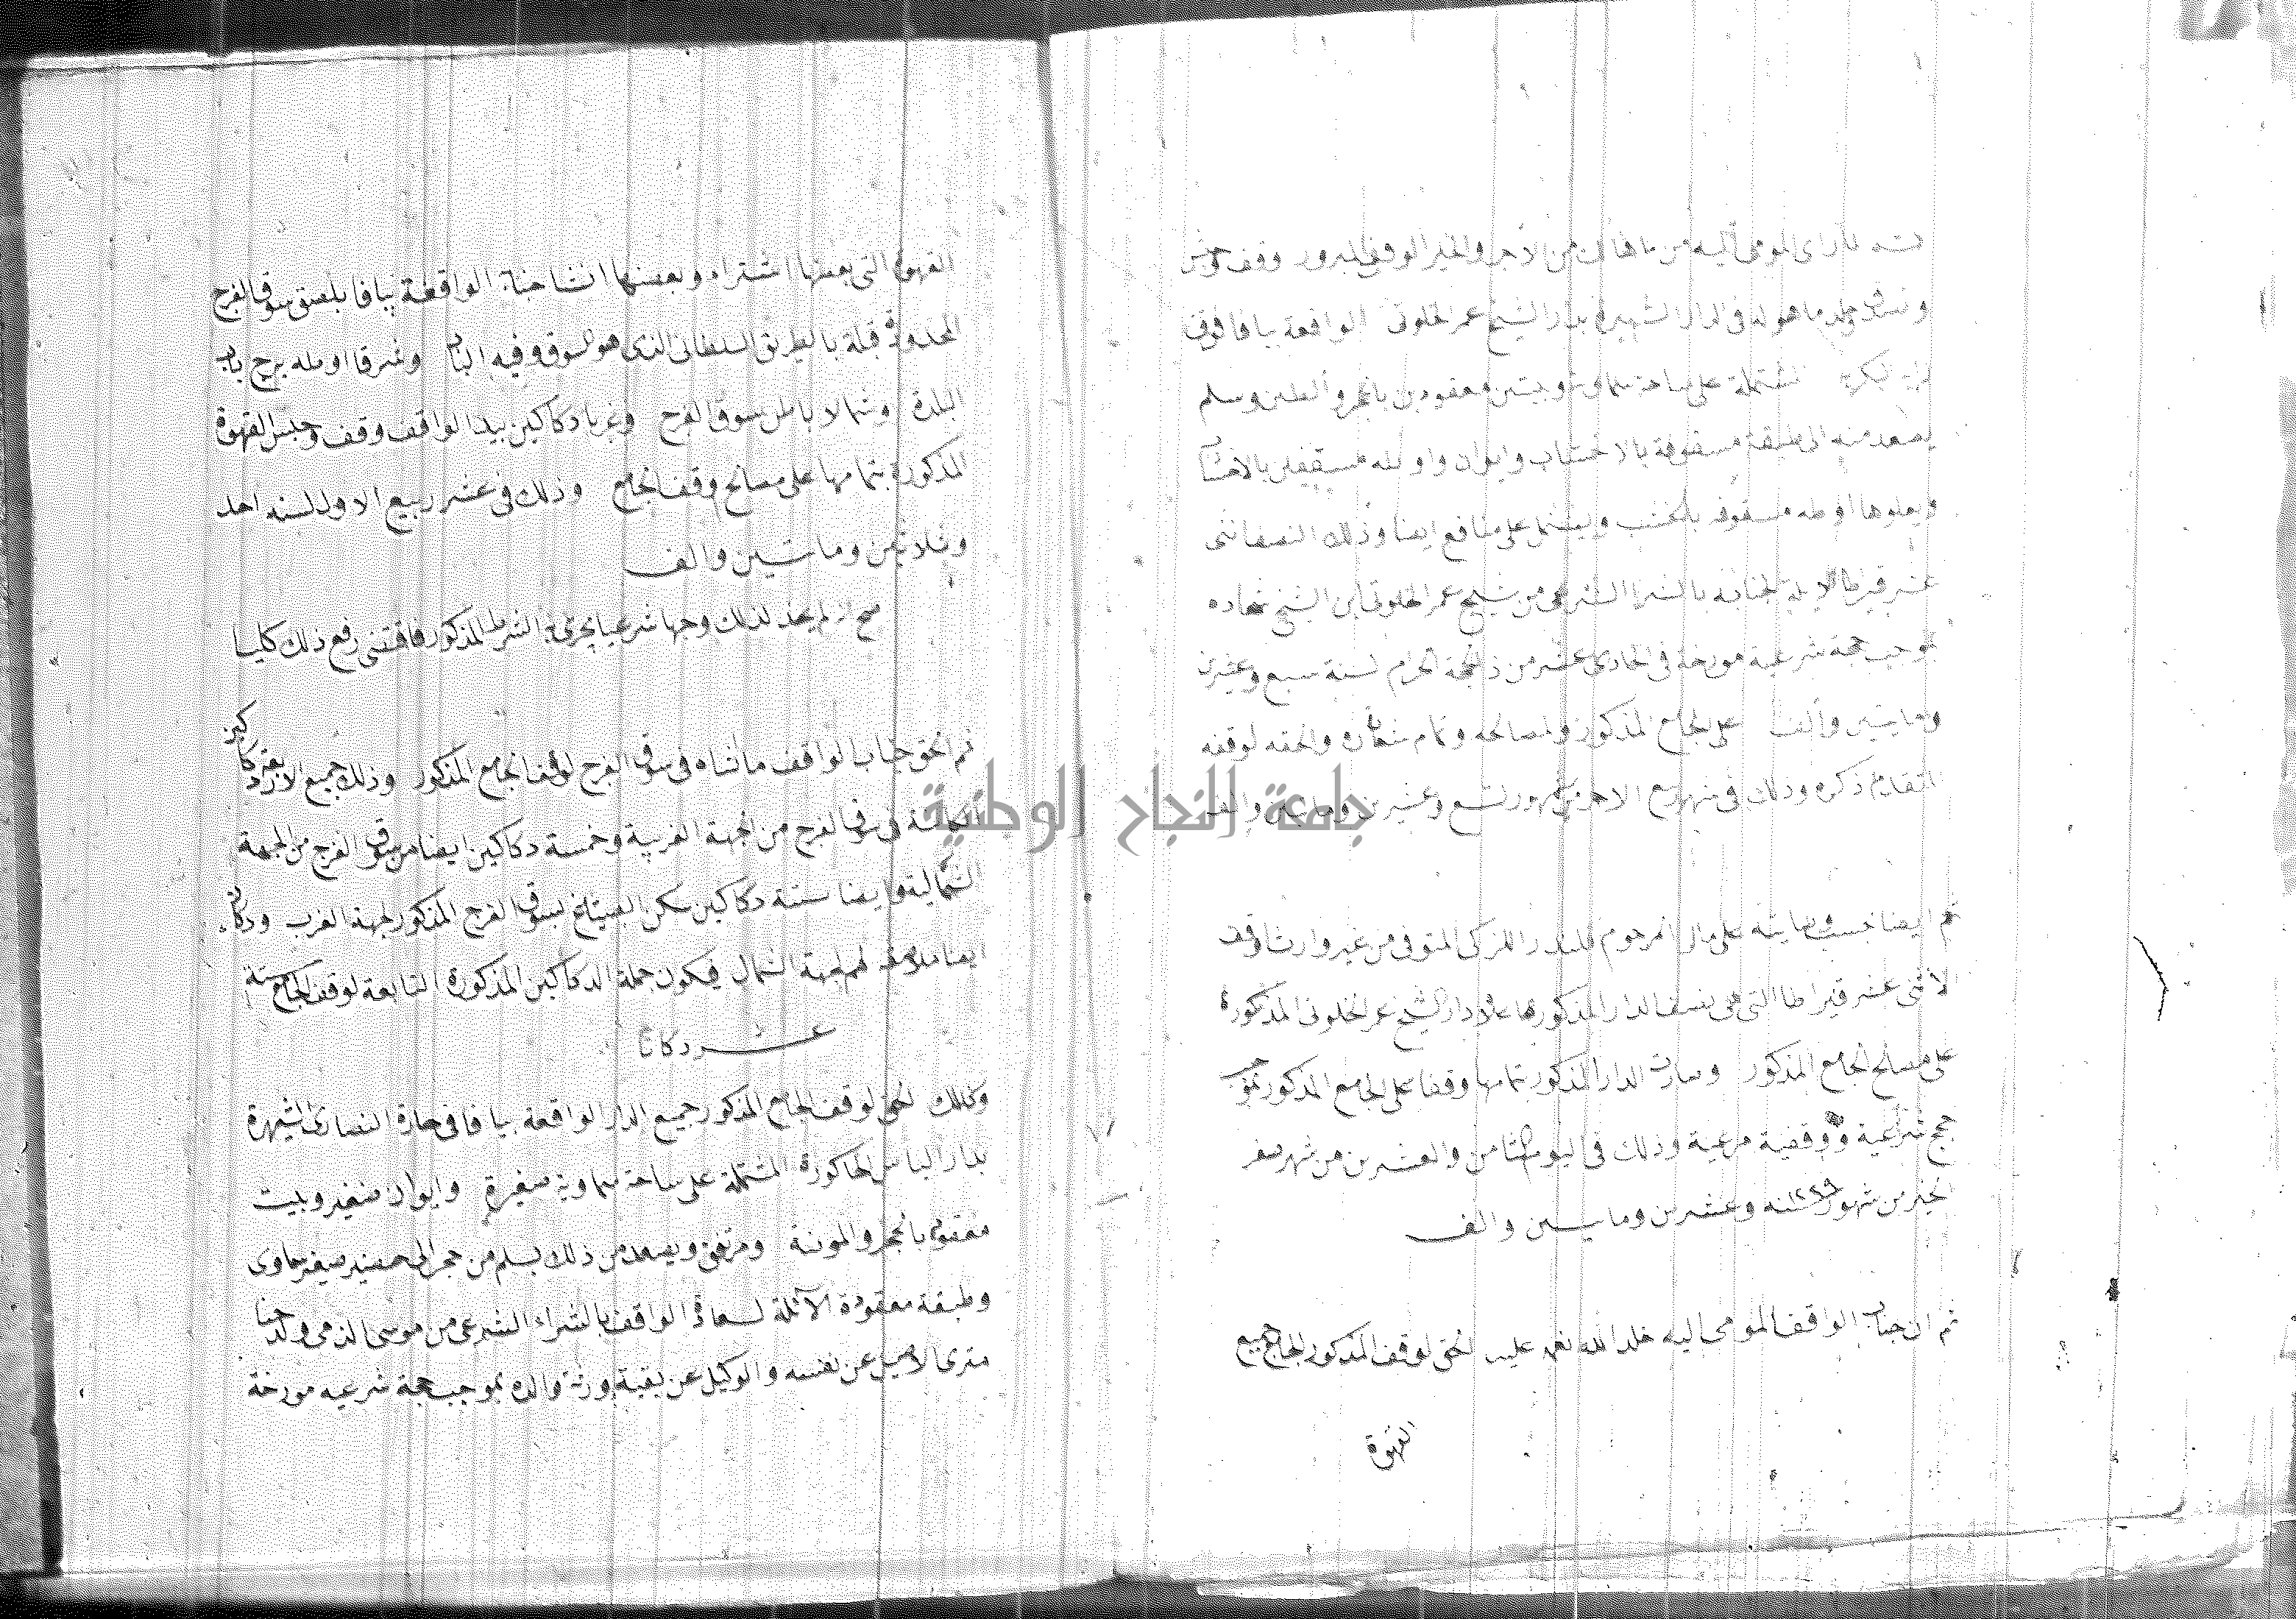 ثم لما راى المومى اليه من ما هنالك من الاجر والخير الوقف المبرور وقف وحبس
وتصدق بجلد ما هو له في الدار الشهيرة بدار الشيخ عمر الخلوتي الواقعة بيافا قرب
المشتملة على ساحة سماوية وبيتين معقودين بالحجر والطين وسلم
يصعد منه الى طبقة مسقوفة بالاخشاب وايوان واوضه مسقفين بالاخشاب
ويعلوها اوضه مسقوفه بالخشب ويشتمل على منافع ايضا وذلك النصف اثنى
عشر قيراطا الايلة لجنابه بالشرا الشرعي من شيخ عمر الخلوتي ابن الشيخ شحاده
بموجب حجة شرعية مورخة في الحادى عشر من ذى الحجة الحرام لسنة سبع وعشرين
ومايتين وألف على الجامع المذكور ولمصالحه وتمام شعائره والحقه لوقفه
المتقادم ذكره وذلك في شهر ربيع الاخر من شهور لتسع وعشرين ومايتين والف
ثم ايضا بحسب وصايته على مال المرحوم المتوفى من غير وارث اوقف
الاثنى عشر قيراطا التي هي نصف الدار المذكور بها علاه دار الشيخ عمر الخلوتي المذكورة
على مصالح الجامع المذكور وصارت الدار المذكور بتمامها وقفا على الجامع المذكور بموجب
حجج شرعية ووقفية مرعية وذلك في اليوم الثامن والعشرين من شهر صفر
الخير من شهور سنه ١٢٢٩ وعشرين ومايتين والف
ثم ان جناب الواقف المومى اليه خلد الله نعمه عليه الحق لوقف المذكور الجامع جميع
القهوة
القهوة التي بعضها اشتراه وبعضها انشا جنابه الواقعة بيافا بلصق سوق الفرج
المحدودة قبلة بالطريق السلطاني الذى هو السوق وفيه الباب وشرقا اوضه برج باب
البلدة وشمالا باطن سوق الفرج وغربا دكاكين بيد الواقف وقف وحبس القهوة
المذكورة بتمامها على مصالح وقف الجامع وذلك في عشر ربيع الاول لسنه احد
وثلاثين ومايتين والف
صح اذ لم يجد لذلك وجها شرعيا يجرى به الشرط المذكور فاقتضى رفع ذلك كليا
ثم الحق جناب الواقف ما انشاه في سوق الفرج لوقف الجامع المذكور وذلك جميع الاربعة دكاكين
الكائنة في سوق الفرج من الجهة الغربية وخمسة دكاكين ايضا من سوق الفرج من الجهة
الشمالية وايضا ستة دكاكين سكن الصياغ بسوق الفرج المذكور لجهة الغرب ودكان
ايضا ملاصقه لهم لجهة الشمال فيكون جملة الدكاكين المذكورة التابعة لوقف الجامع ستة
عشر دكانا
وكذلك الحق لوقف الجامع المذكور جميع الدار الواقعة بيافا في حارة النصارى الشهيرة
بدار الياس الحاكورة المشتملة على ساحة سماوية صغيرة وايوان صغير وبيت
معقود بالحجر والمونة ومرتفق ويصعد من ذلك بسلم من حجر الى حضير صغير سماوى
وطبقة معقودة الآئلة لسعادة الواقف بالشراء الشرعي من موسى الذمي ولد حنا
مترى الاصيل عن نفسه والوكيل عن بقية ورثة والده بموجب حجة شرعيه مورخة
جامعة النجاح الوطنية